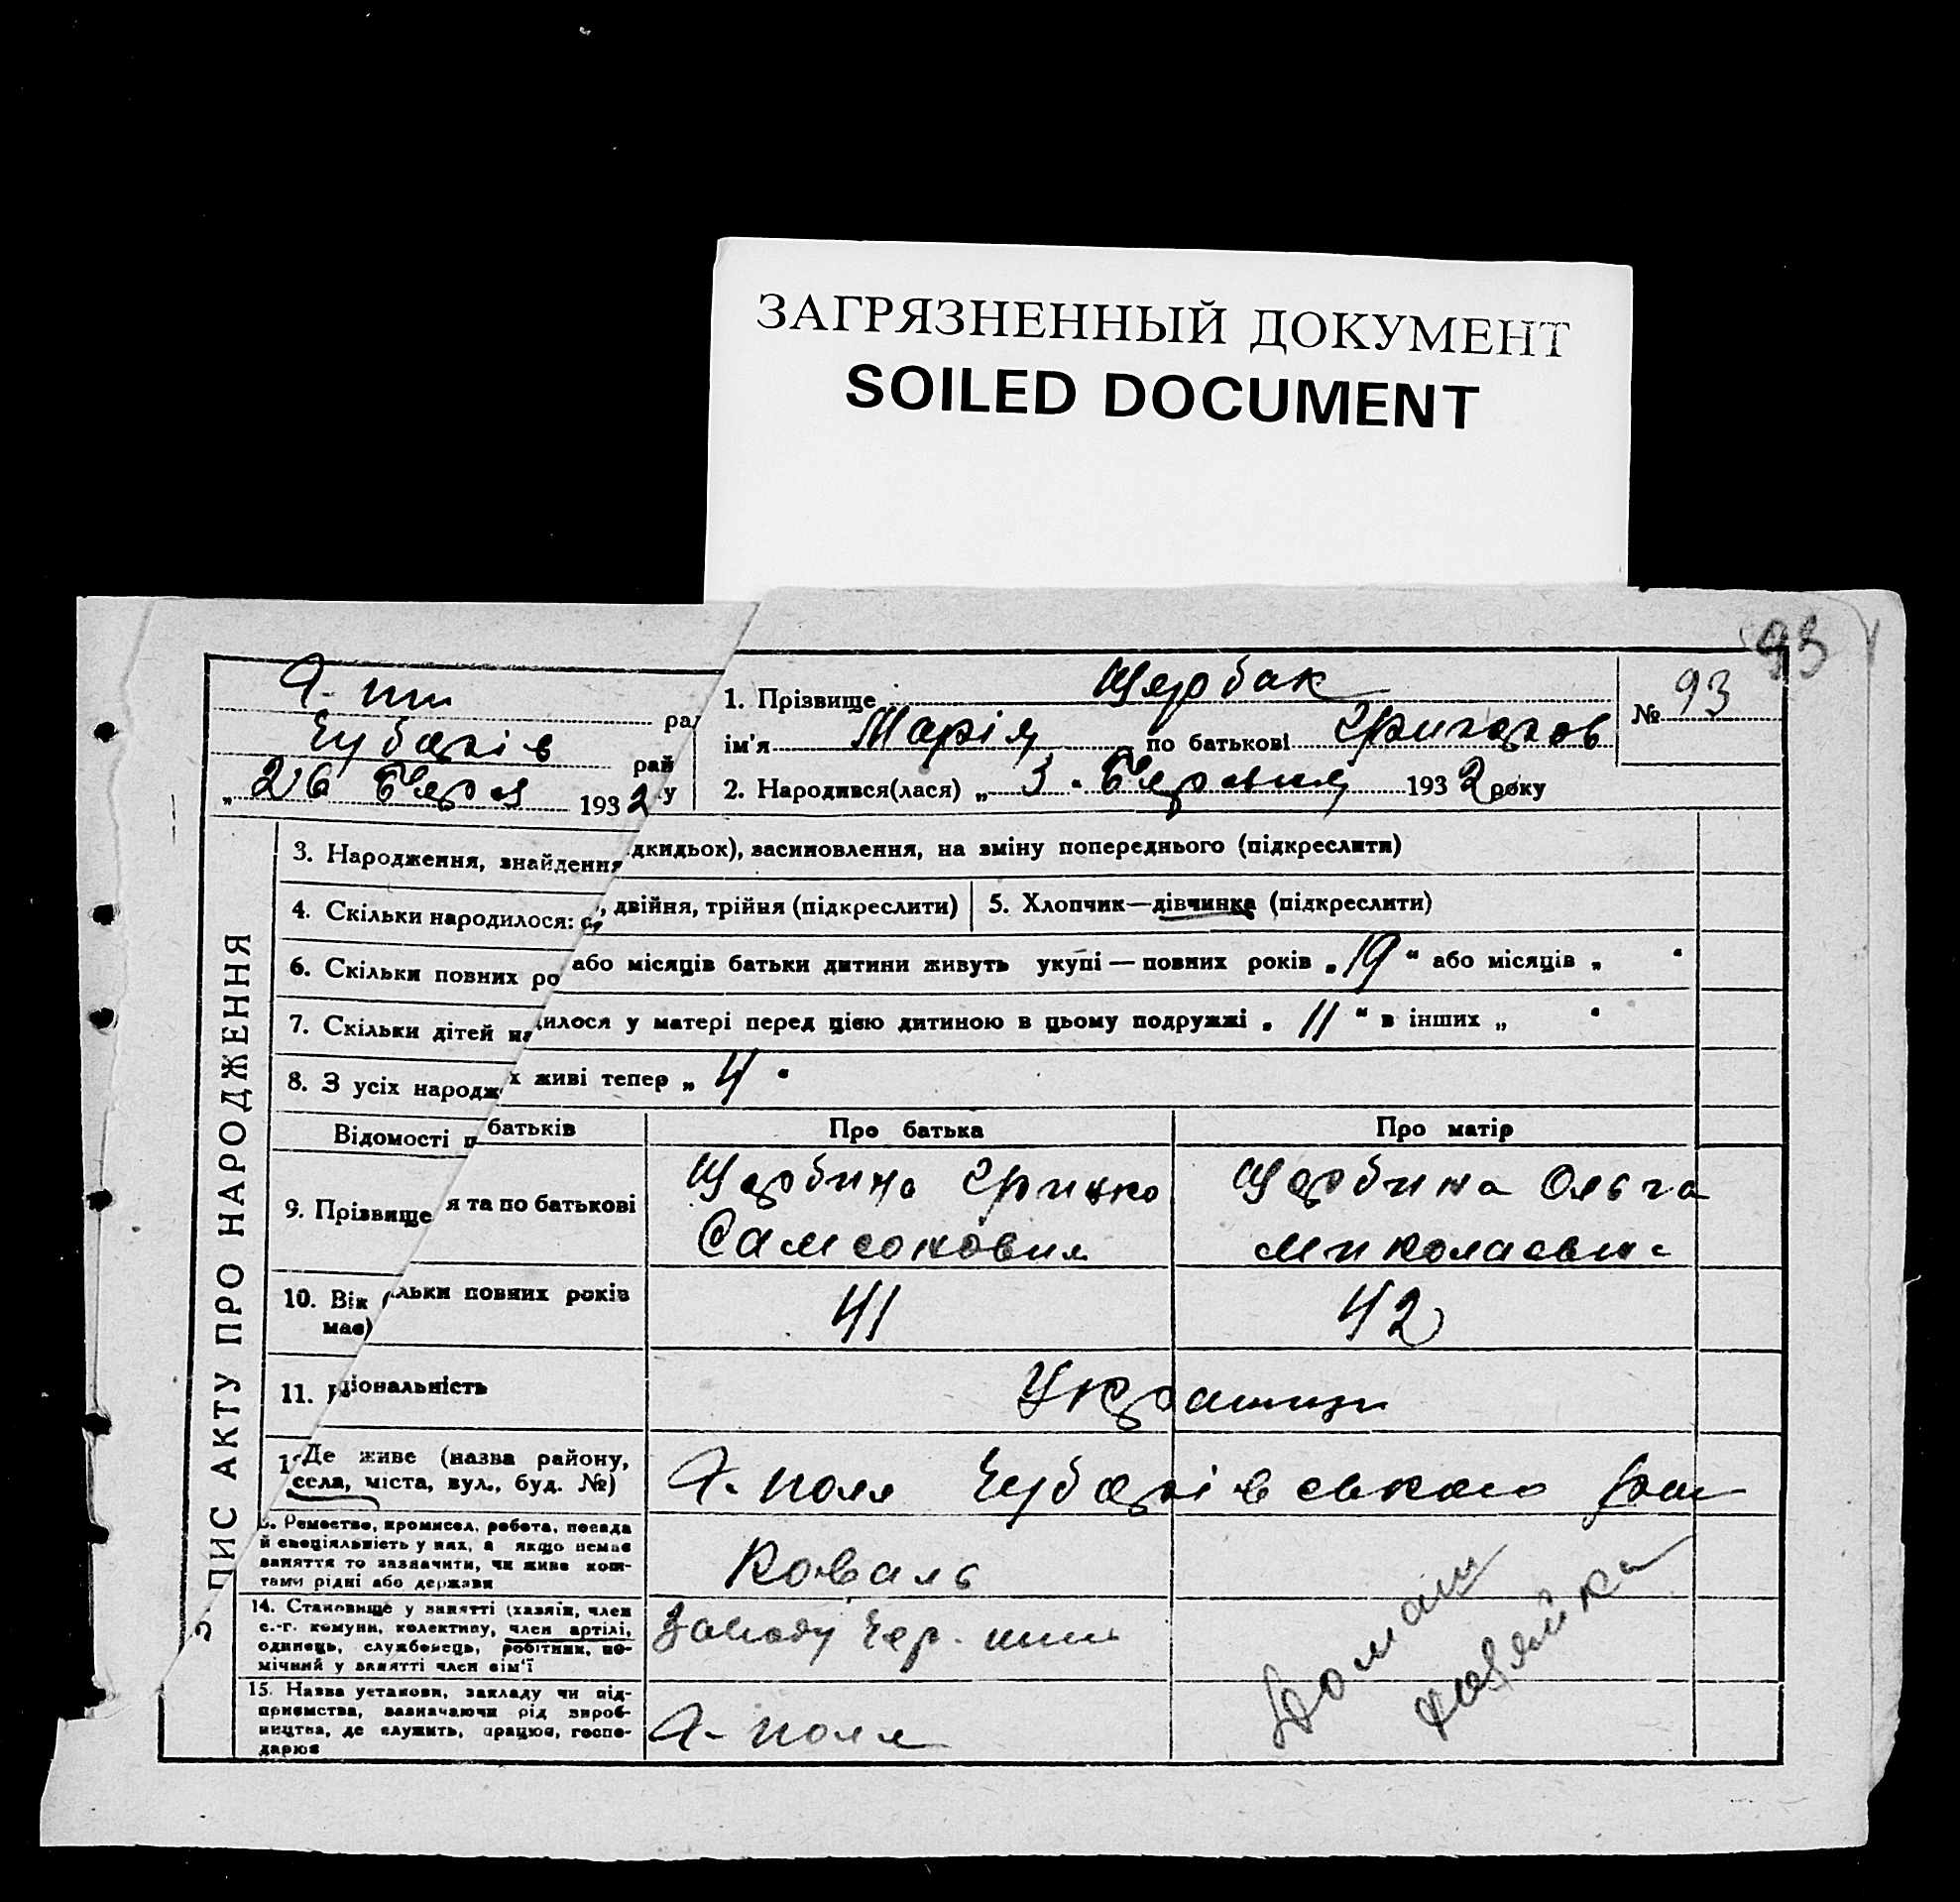 ЗАГРЯЗНЕННЫЙ ДОКУМЕНТ
SOILED DOCUMENT
93
рай
Чубарів рай
„ 26 Берез 1932 ку
1. Прізвище Щербак
ім'я Марія по батькові Григоров
№ 93
2. Народився(лася) „ 3 • Березня 1932 року
ПИС АКТУ ПРО НАРОДЖЕННЯ
3. Народження, знайдення дкидьок), засиновлення, на зміну попереднього (підкреслити)
4. Скільки народилося: о, двійня, трійня (підкреслити)
5. Хлопчик—дівчинка (підкреслити)
6. Скільки повних ро або місяців батьки дитини живуть укупі — повних років „ 19 “ або місяців „ “
7. Скільки дітей на илося у матері перед цією дитиною в цьому подружжі „ 11 “ в інших „ “
8. З усіх народж х живі тепер „ 4 “
Відомості п батьків
Про батька
Про матір
9. Прізвище я та по батькові
Щербина Грицко
Самсонович
Щербина Ольга
Миколаевна
10. Вік льки повних років
має)
41
42
11. ціональність
Українци
Де живе (назва району,
села, міста, вул., буд. №)
поля Чубарівського рай
Ремество, промисел, робота, посада
й спеціяльність у них, а якщо немає
заняття то зазначити, чи живе кош-
тами рідні або держави
Коваль
14. Становище у занятті (хазяїн, член
с.-г. комуни, колективу, член артілі,
одинець, службовець, робітник, по-
мічний у занятті член сім'ї
Заводу Чер.
15. Назва установи, закладу чи під-
приємства, зазначаючи рід вироб-
ництва, де служить, працює, госпо-
дарює
поля
Домаш
хозяйка